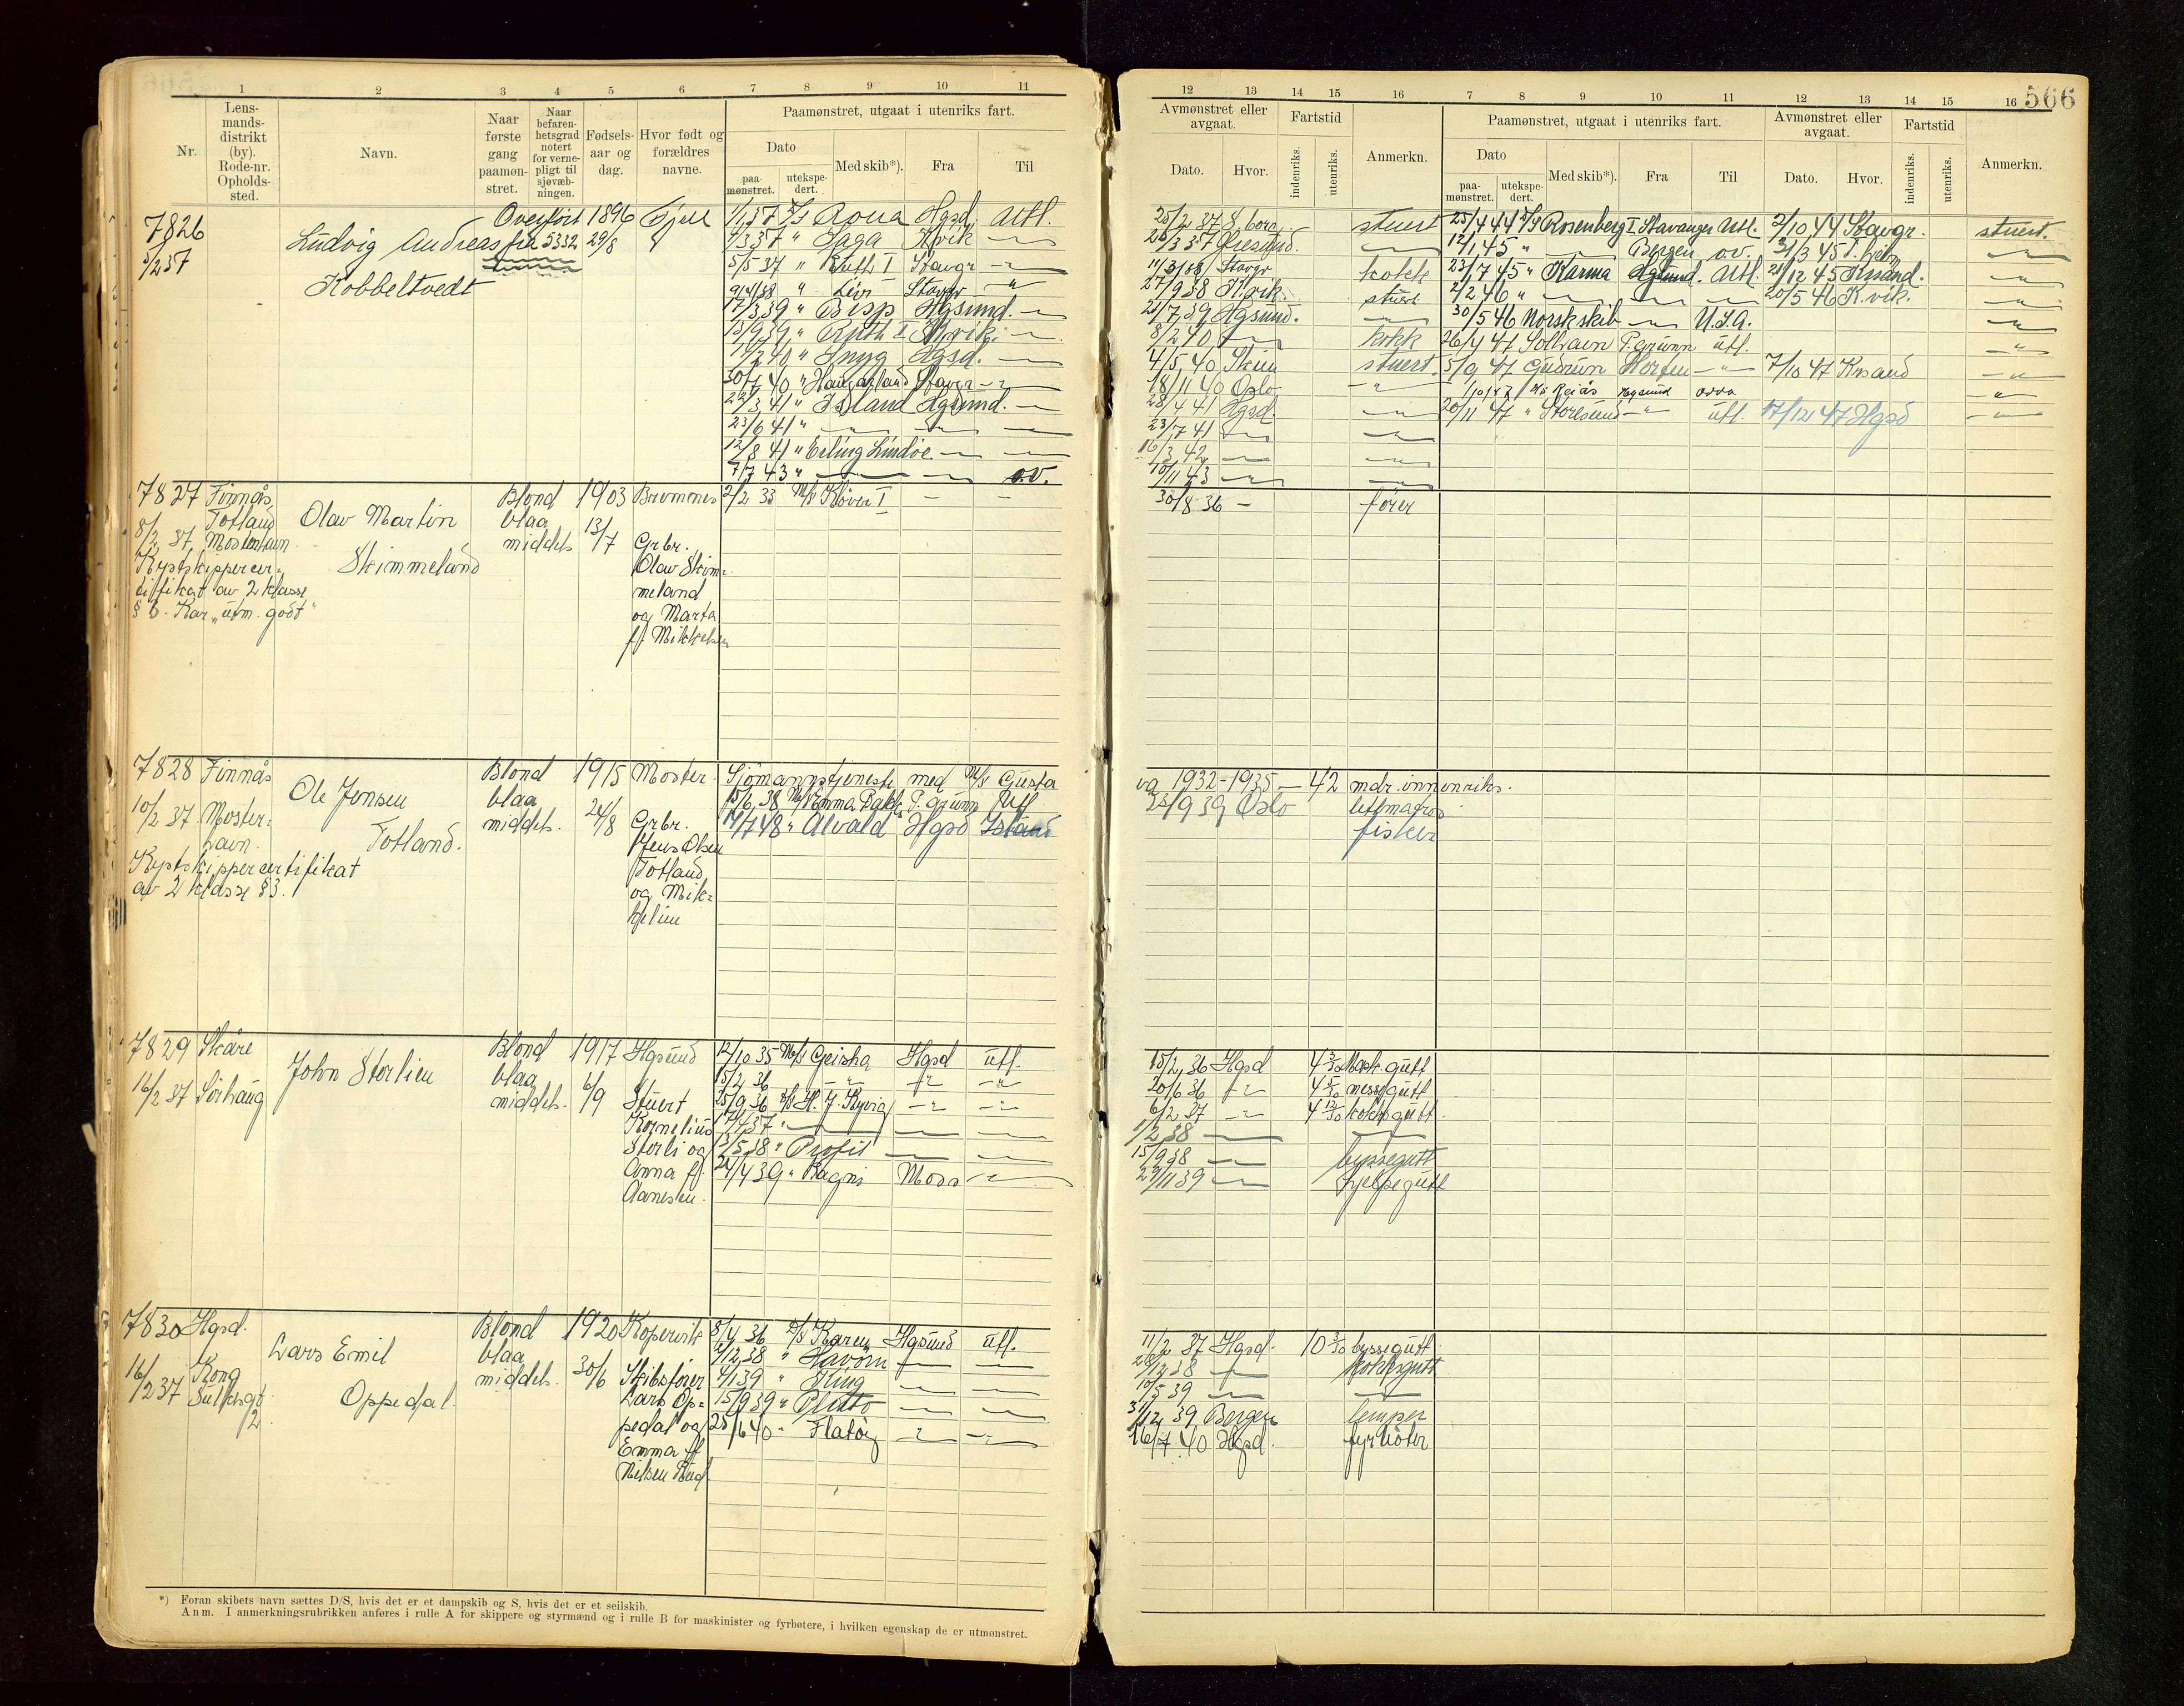 1 2 3 4 5 6 7 8 9 10 11
Nr.
Lensmandsdistrikt (by). Rode-nr. Opholdssted.
Navn.
Naar første gang paamønstret.
Naar befarenhetsgrad notert for vernepligt til sjøvæbningen.
Fødselsaar og dag.
Hvor født og forældres navne.
Paamønstret, utgaat i utenriks fart.
Dato
paamønstret.
utekspedert.
Med skib*).
Fra
Til
7826 Overført 1896 Fjell
5/2 37 Ludvig Andreas fra 5332 29/8
Kobbeltvedt
Hgsd. Utl.
" Saga Kvik
5/5 37 " Ruth I Stavgr
9/4 38 " Stavgr
17/3 39 " Bisp Hgsund.
15/9 39 " Ruth I
" Snyg Hgsd.
30/7 40 " Haugarland Stavgr
22/3 41 " Island Hgsund.
23/6 41 "
12/8 41 " Erling Lindøe
7/7 43 " ov.
7827 Finnås Blond 1903 Bremnes 2/2 33 M/s Kløver I - -
8/2 37 Totland Olav Martin blaa 13/7
Mosterhavn middels Grbr.
Kystskippercer- Skimmeland Olav Skim-
tifikat av 2 klasse meland
§ 3. Kar. „utm. godt" og Marta
f. Mikkelsen
7828 Finnås Blond 1915 Moster Sjømannstjeneste med M/s Gusta
10/2 37 Moster- Ole Jensen blaa 24/8 15/6 38 P. grunn Utl
havn. Totland. middels. Grbr. 14/7 48 " Alvald Hgsd Island
Kystskippercertifikat Jens Olsen
av 2 klasse § 3. Totland
og Mik-
kjeline
7829 Skåre Blond 1917 Hgsund 12/10 35 M/s Geisha Hgsd utl.
16/2 37 Sørhaug John Storlien blaa 6/9 15/2 36
middels. Stuert 25/9 36 D/s H. J. Kyvig
Kornelius 17/4 37 "
Storli og 13/5 38 " Profit
Anna f. 24/4 39 " Ragni Moss
Aanesen.
7830 Hgsd. Blond 1920 Kopervik 8/4 36 D/s Karen Hgsund utl.
16/2 37 Kong Lars Emil blaa 30/6 2/12 38 " Havørn
Sulchsgt 2. Oppedal. middels. Skibsfører 4/1 39 " King
Lars Op- 15/9 39 " Pluto
pedal og 25/6 40 " Flatøy
Emma f.
Nilsen
*) Foran skibets navn sættes D/S, hvis det er et dampskib og S, hvis det er et seilskib.
Anm. I anmerkningsrubrikken anføres i rulle A for skippere og styrmænd og i rulle B for maskinister og fyrbøtere, i hvilken egenskap de er utmønstret.
12 13 14 15 16 7 8 9 10 11 12 13 14 15 16 566
Avmønstret eller avgaat.
Dato.
Hvor.
Fartstid
indenriks.
utenriks.
Anmerkn.
Paamønstret, utgaat i utenriks fart.
Dato
paamønstret.
utekspedert.
Med skib*).
Fra
Til
Avmønstret eller avgaat.
Dato.
Hvor.
Fartstid
indenriks.
utenriks.
Anmerkn.
25/2 37 S borg. stuert 25/4 44 D/s Rosenberg I Stavanger Utl. 2/10 44 Stavgr. stuert.
12/1 45 " Bergen ov. 31/3 45
11/3 38 Stavgr kokk 23/7 45 " Karma Hgsund. Utl. 21/12 45 Krsand.
27/9 38 K.vik. stuert 2/2 46 " 20/5 46 K.vik.
21/7 39 Hgsund. 30/5 46 Norsk skib U.S.A.
8/2 40 kokk 26/4 47 Solhavn P. grunn utl.
4/5 40 Skien stuert. 5/9 47 Gudrun Horten 7/10 47 Krsand
18/11 40 Oslo Hgsund
28/4 41 Hgsd. 20/11 47 " Storesund utl. 17/12 47 Hgsd
23/7 41
16/3 42
10/11 43
30/8 36 - fører
og 1932-1935 - 42 mdr. innenriks.
25/9 39 Oslo lettmatros
fisker
15/2 36 Hgsd 4 3/30 gutt
20/6 36 4 5/30 messegutt
6/2 37 4 12/30 kokksgutt.
1/2 38
15/9 38 byssegutt
29/11 39 hjelpegutt
11/2 37 Hgsd. 10 3/30 byssegutt
28/2 38 kokksgutt
10/5 39
31/12 39 Bergen lemper
16/7 40 Hgsd. fyrbøter